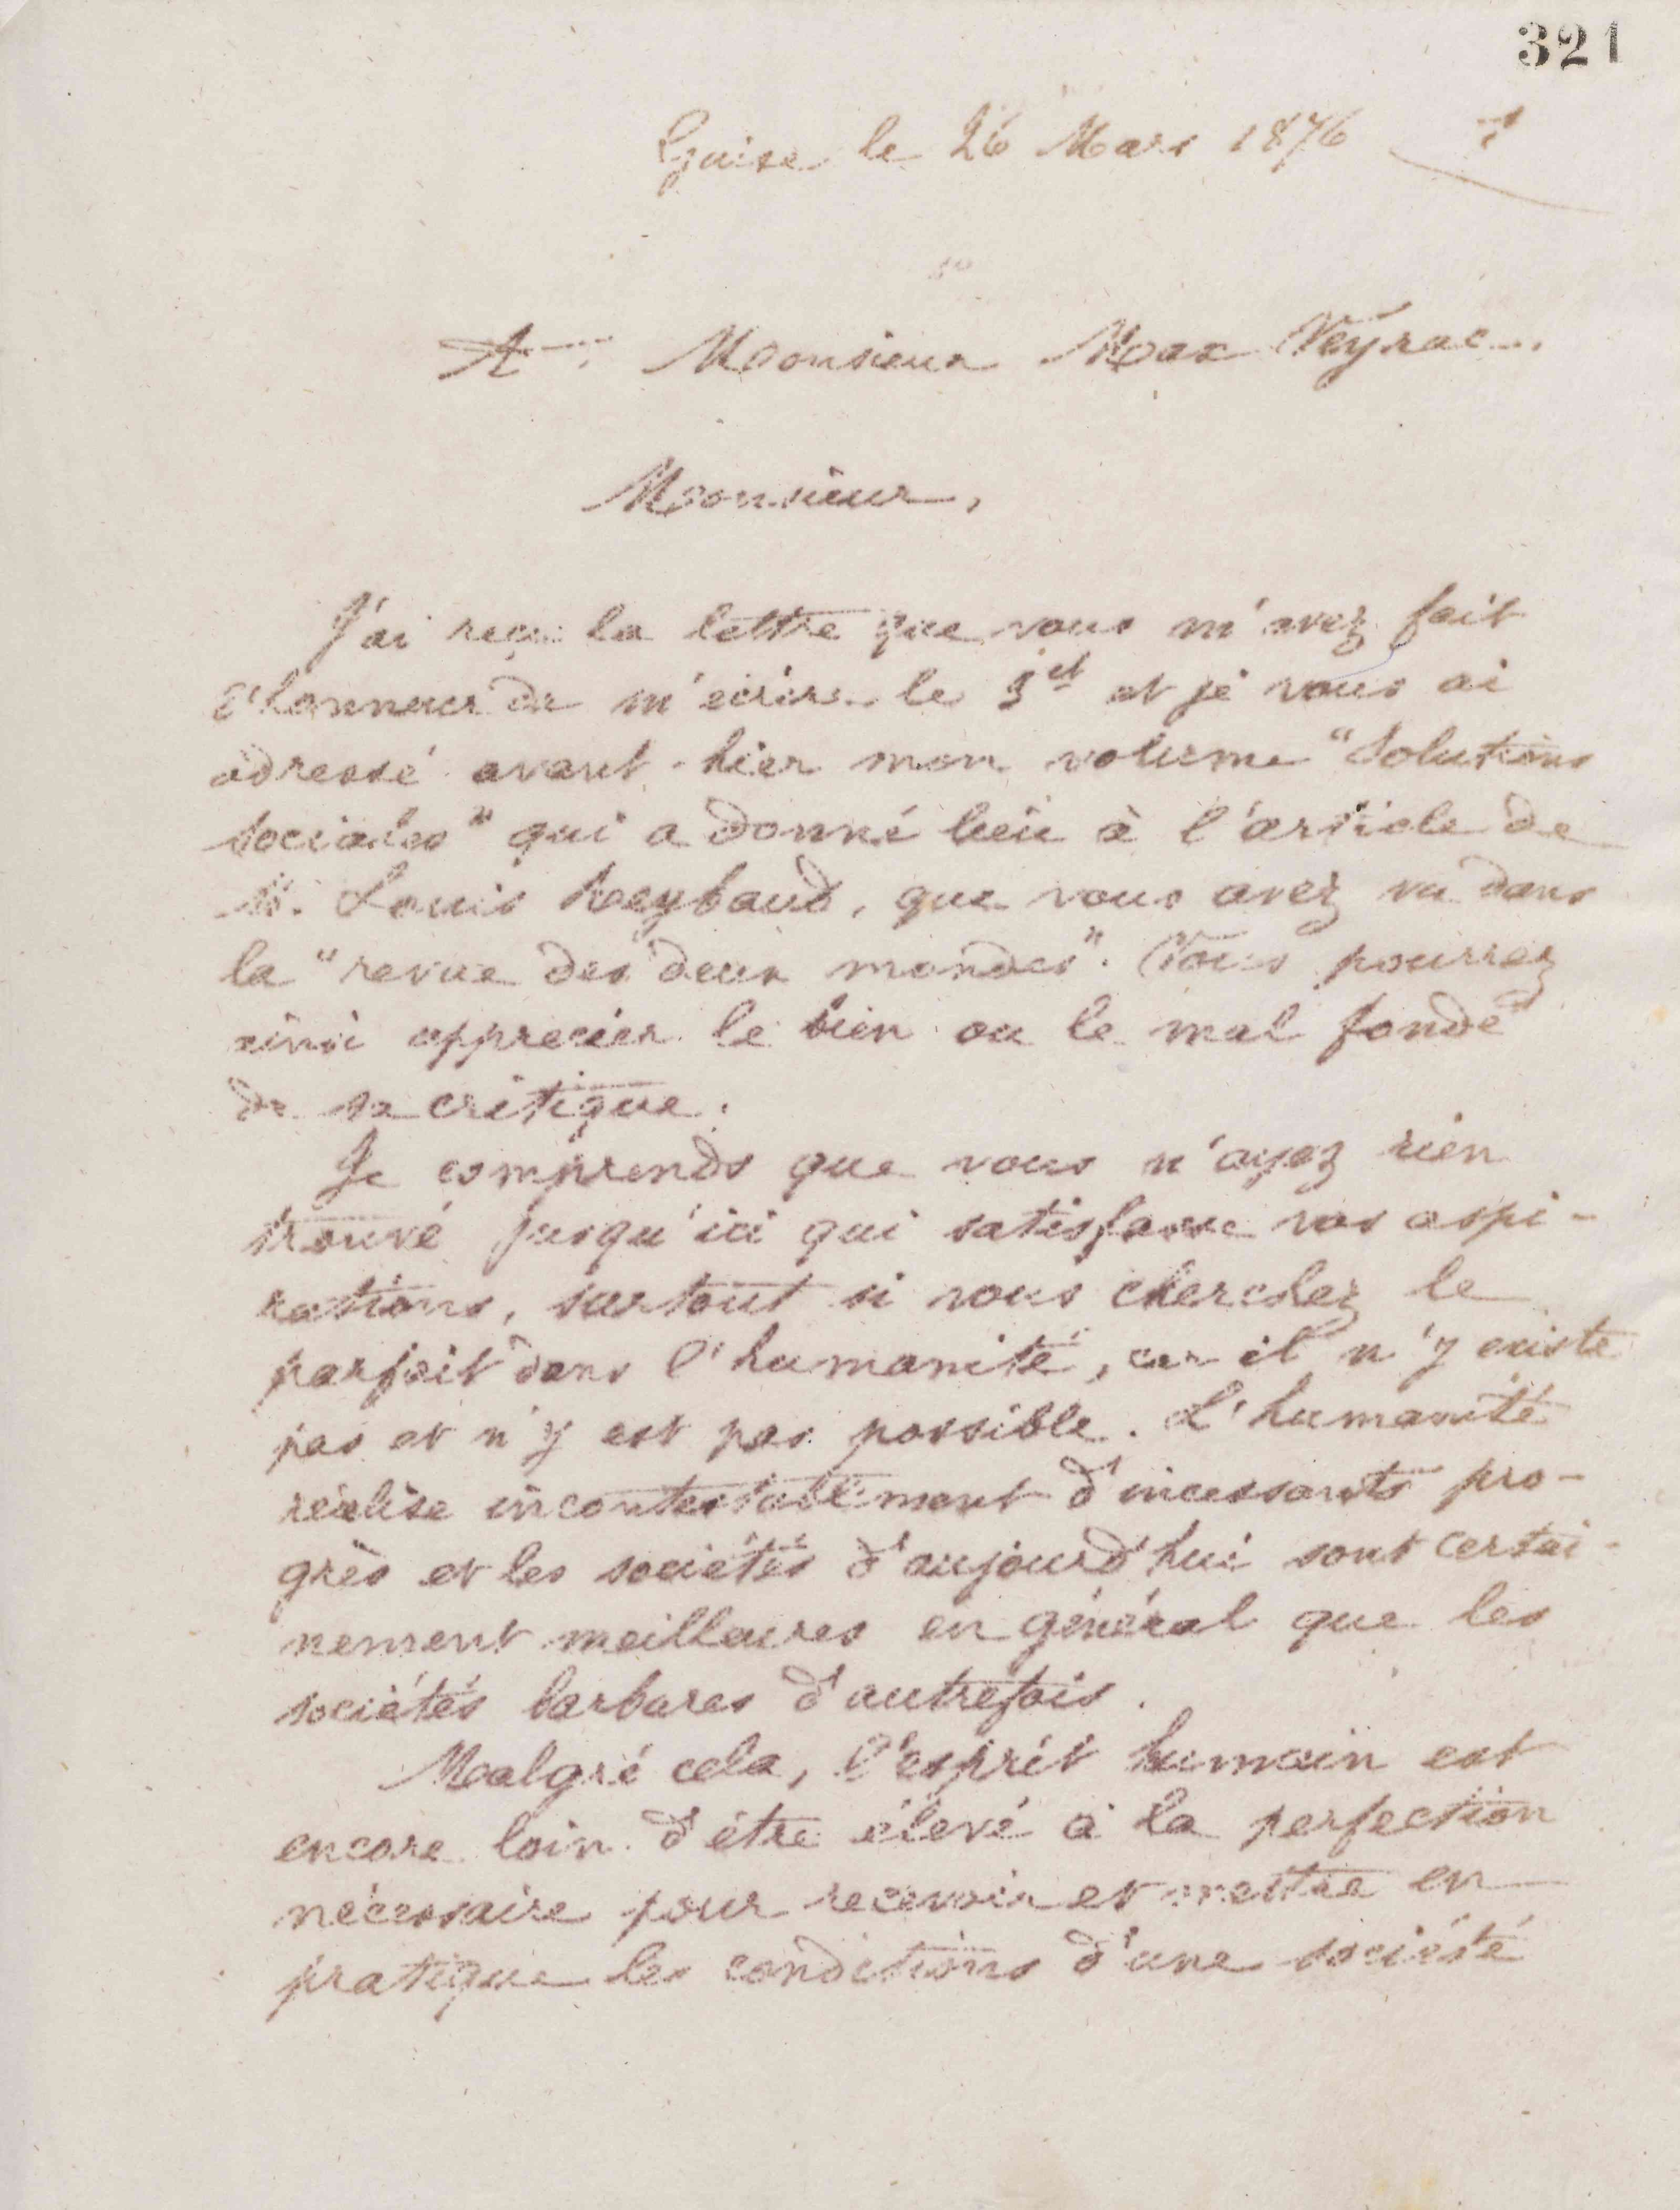 321
Guise le 26 Mars 1876
A Monsieur Max Veyrac.
Monsieur,
J'ai reçu la lettre que vous m'avez fait
l'honneur de m'écrire le 5 ct et je vous ai
adressé avant-hier mon volume "Solutions
sociales" qui a donné lieu à l'article de
M. Louis Reybaud, que vous avez vu dans
la "revue des deux mondes". Vous pourrez
ainsi apprécier le bien ou le mal fondé
de sa critique.
Je comprends que vous n'ayez rien
trouvé jusqu'ici qui satisfasse vos aspi-
rations, surtout si vous cherchez le
parfait dans l'humanité, car il n'y existe
pas et n'y est pas possible. L'humanité
réalise incontestablement d'incessants pro-
grès et les sociétés d'aujourd'hui sont certai-
nement meilleures en général que les
sociétés barbares d'autrefois.
Malgré cela, l'esprit humain est
encore loin d'être élevé à la perfection
nécessaire pour recevoir et mettre en
pratique les conditions d'une société